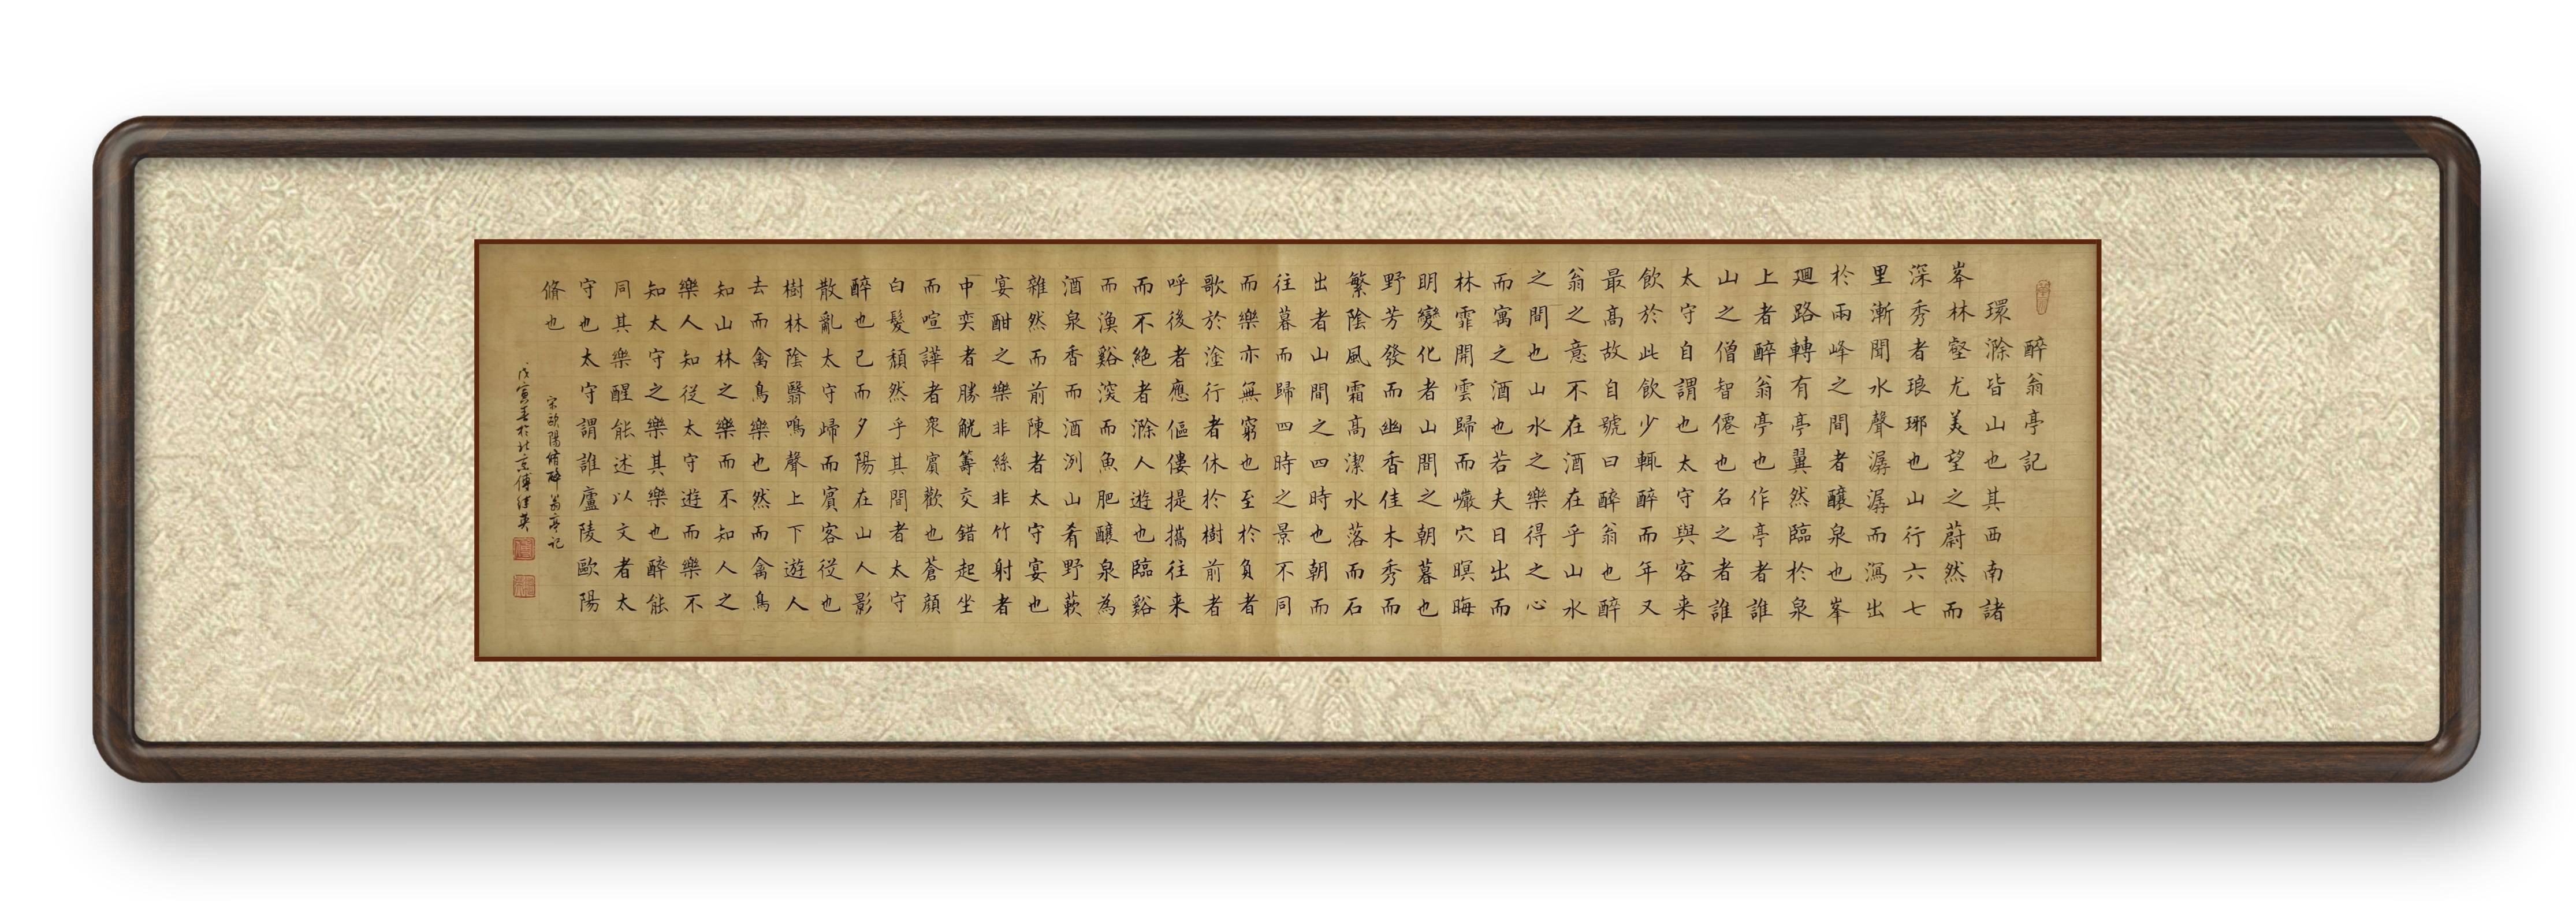 醉翁亭記
環滁皆山也其西南諸
峯林壑尤美望之蔚然而
深秀者琅琊也山行六七
里漸聞水聲潺潺而瀉出
於兩峰之間者釀泉也峯
廻路轉有亭翼然臨於泉
上者醉翁亭也作亭者誰
山之僧智僊也名之者誰
太守自謂也太守與客来
飲於此飲少輒醉而年又
最髙故自號曰醉翁也醉
翁之意不在酒在乎山水
之間也山水之樂得之心
而寓之酒也若夫日出而
林霏開雲歸而巗穴暝晦
明變化者山間之朝暮也
野芳發而幽香佳木秀而
繁陰風霜髙潔水落而石
出者山間之四時也朝而
往暮而歸四時之景不同
而樂亦無窮也至於負者
歌於塗行者休於樹前者
呼後者應傴僂提攜往来
而不絶者滁人遊也臨谿
而漁谿深而魚肥釀泉為
酒泉香而酒洌山肴野蔌
雜然而前陳者太守宴也
宴酣之樂非絲非竹射者
中奕者勝觥籌交錯起坐
而喧譁者衆賓歡也蒼顔
白髮頹然乎其間者太守
醉也已而夕陽在山人影
散亂太守歸而賓客從也
樹林陰翳鳴聲上下遊人
去而禽鳥樂也然而禽鳥
知山林之樂而不知人之
樂人知從太守遊而樂不
知太守之樂其樂也醉能
同其樂醒能述以文者太
守也太守謂誰廬陵歐陽
脩也
宋歐陽脩醉翁亭记
戊寅春於北京傅佳英